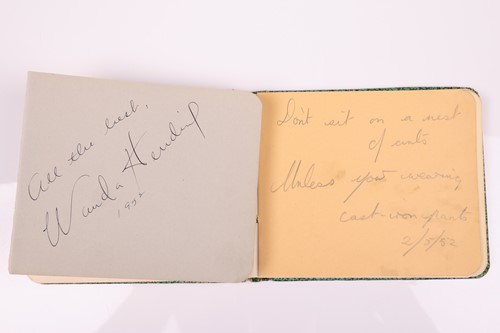 All the best,
Wanda Hendrix
1952
Don't sit on a nest
of ants
Unless your wearing
cast-iron pants
2/5/52